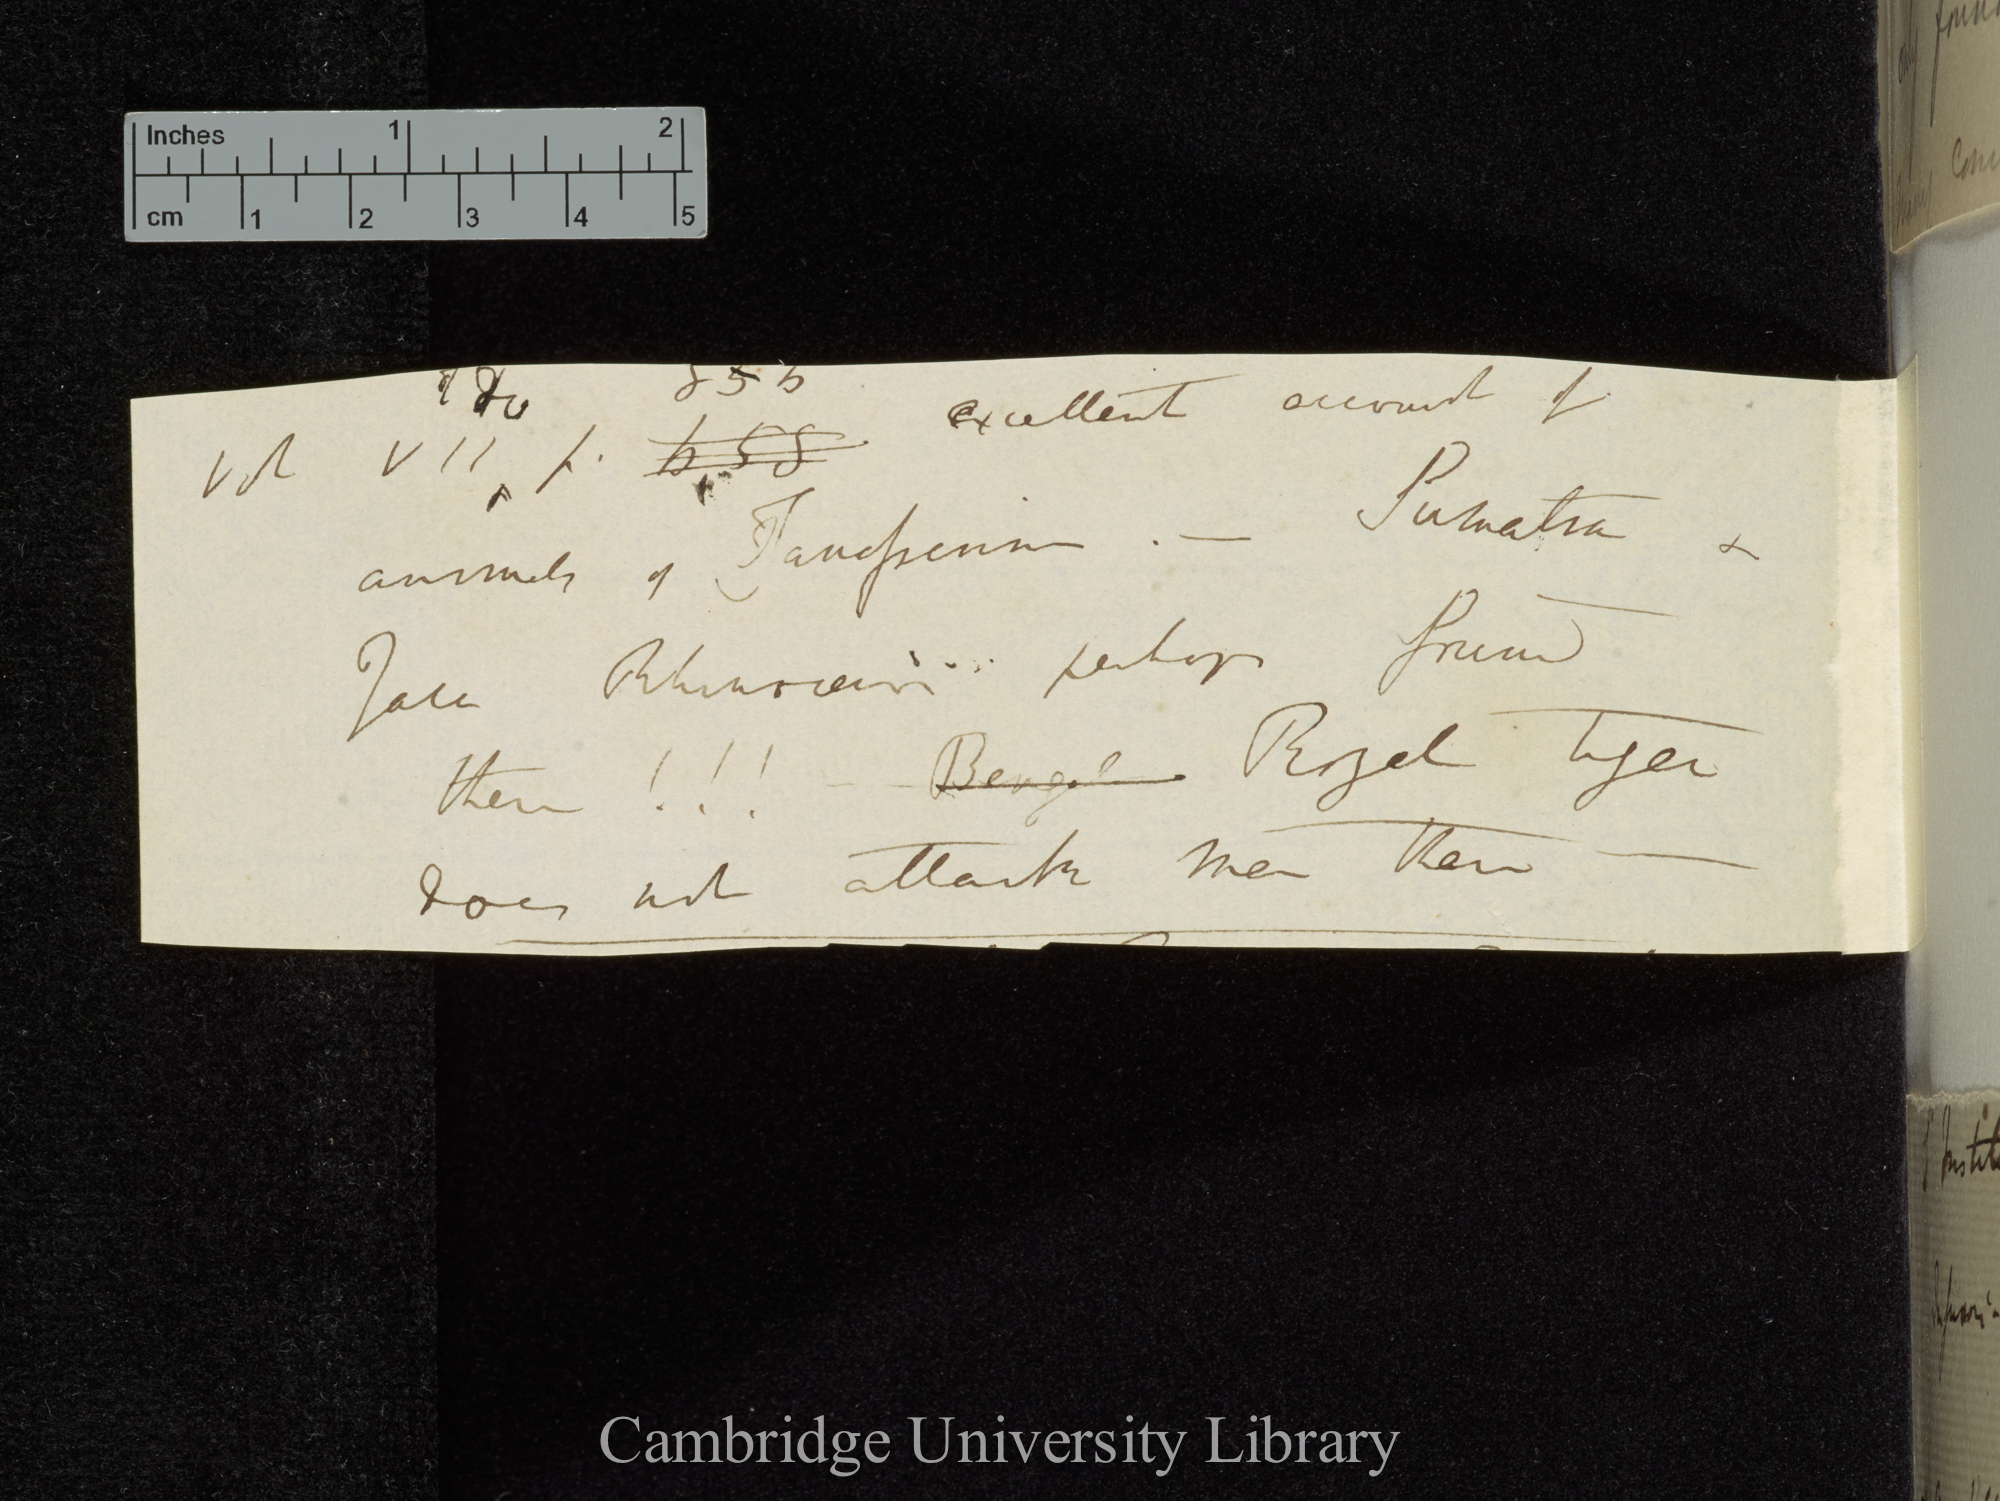 Inches 1 2
cm 1 2 3 4 5
856
Vol VII p. 658 excellent account of
animals of Tenasserim. — Sumatra &
Java Rhinoceros perhaps found
there!!! — Bengal Royal tiger
does not attack men there —
Cambridge University Library